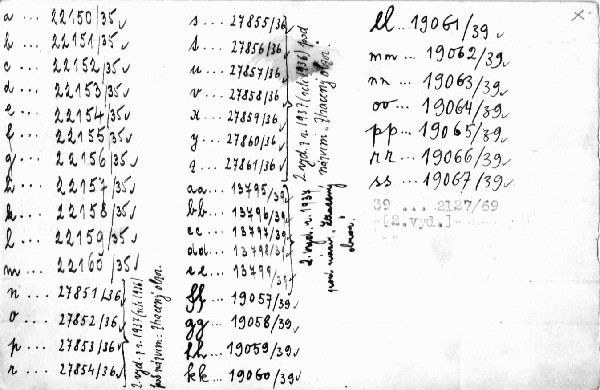 a ... 22150/35
b ... 22151/35
c ... 22152/35
d ... 22153/35
e ... 22154/35
f ... 22155/35
g ... 22156/35
h ... 22157/35
k ... 22158/35
l ... 22159/35
m ... 22160/35
n ... 27851/36
o ... 27852/36
p ... 27853/36
r ... 27854/36
2 vyd. z r. 1937 (nebo 1936)
pod názvem: Ztracený obzor.
s ... 27855/36
t ... 27856/36
u ... 27857/36
v ... 27858/36
x ... 27859/36
y ... 27860/36
z ... 27861/36
2 vyd. z r. 1937 (nebo 1936) pod
názvem: Ztracený obzor.
aa ... 13795/39
bb ... 13796/39
cc ... 13797/39
dd ... 13798/39
ee ... 13799/39
2. vyd. r. 1937
pod názv. Ztracený
obzor.
ff ... 19057/39
gg ... 19058/39
hh ... 19059/39
kk ... 19060/39
ll ... 19061/39
mm ... 19062/39
nn ... 19063/39
oo ... 19064/39
pp ... 19065/39
rr ... 19066/39
ss ... 19067/39
39 ... 2127/69
-[2.vyd.]-